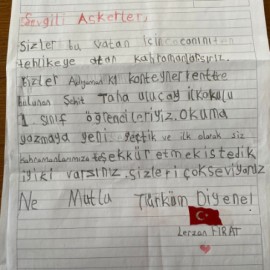 Sevgili Askerler,
Sizler bu vatan için canını
tehlikeye atan kahramanlarsınız.
Bizler Adıyaman K1 konteynerkentte
bulunan Şehit Taha Uluçay ilkokulu
1. sınıf öğrencileriyiz. okuma
yazmaya yeni geçtik ve ilk olarak siz
kahramanlarımıza teşekkür etmek istedik
iyiki varsınız. Sizleri çok seviyoruz
Ne Mutlu Türküm Diyene!
Lerzan FIRAT